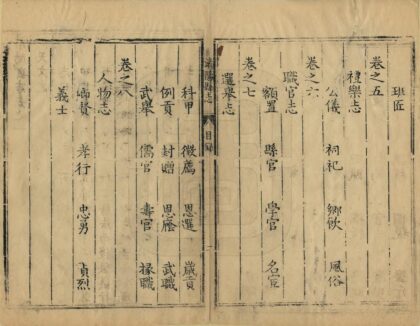 班匠
卷之五
禮樂志
公儀 祠祀 鄉飲 風俗
卷之六
職官志
額置 縣官 學官 名宦
卷之七
選舉志
縣志 目錄
科甲 徵薦 恩選 歲貢
例貢 封贈 恩廕 武職
武舉 儒官 壽官 掾職
卷之八
人物志
鄉賢 孝行 忠勇 貞烈
義士